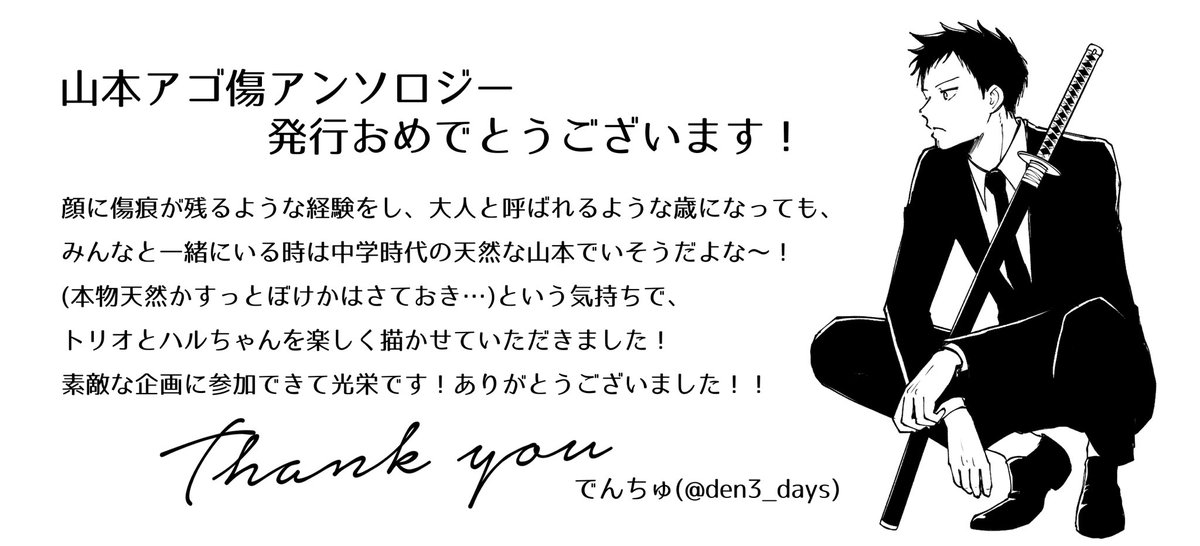 山本アゴ傷アンソロジー
発行おめでとうございます！
顔に傷痕が残るような経験をし、大人と呼ばれるような歳になっても、
みんなと一緒にいる時は中学時代の天然な山本でいそうだよな〜！
(本物天然かすっとぼけかはさておき…)という気持ちで、
トリオとハルちゃんを楽しく描かせていただきました！
素敵な企画に参加できて光栄です！ありがとうございました！！
Thank you
でんちゅ(@den3_days)